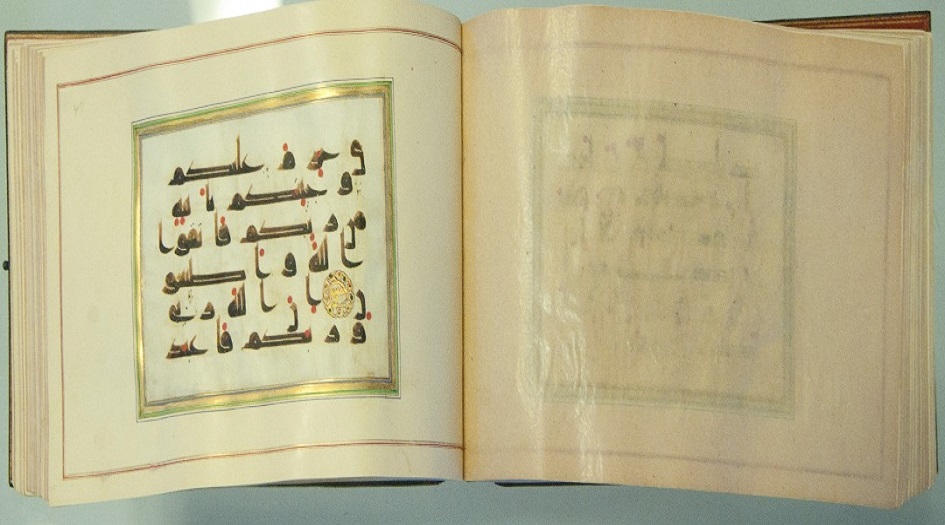 ى حرم عليكم
و جيتكم بايه
من ربكم فاتقوا
الله و اطيعو
ن ا ن ا لله ربى
و ربكم فاعبد